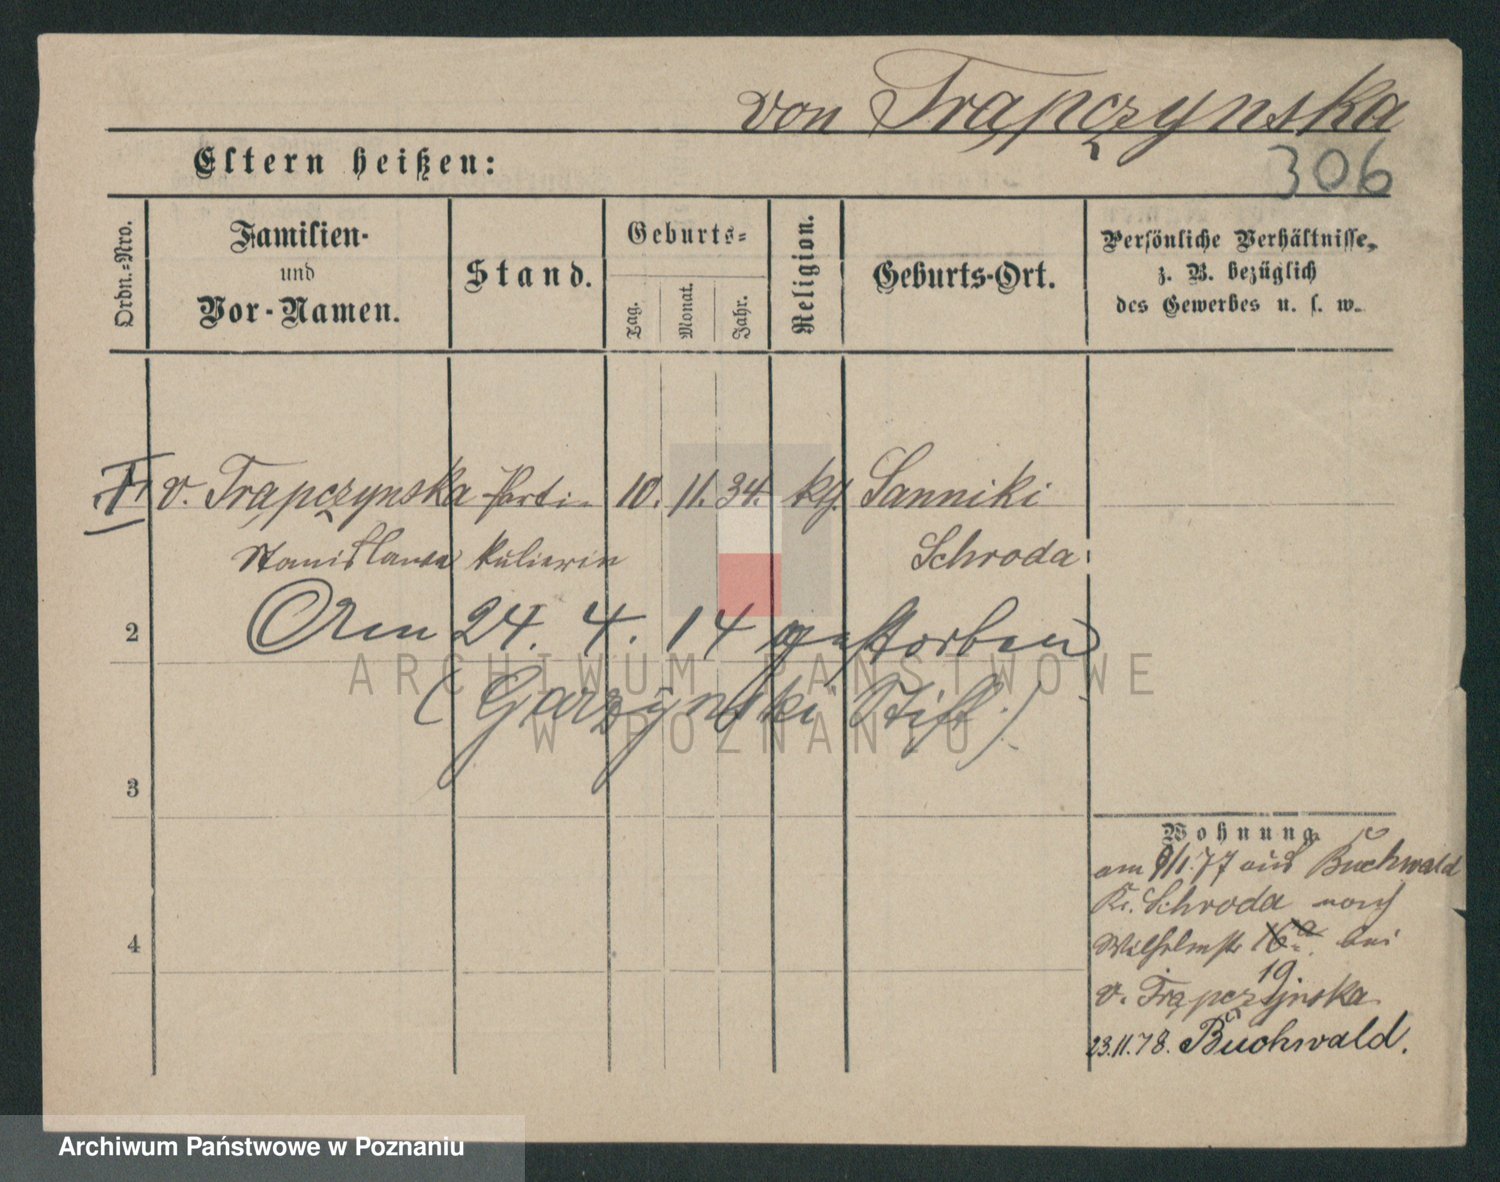 von Trąpczynska
306
Eltern heißen:
Ordn.-Nro.
Familien-
und
Vor-Namen.
Stand.
Geburts-
Tag.
Monat.
Jahr.
Religion.
Geburts-Ort.
Persönliche Verhältnisse,
z. B. bezüglich
des Gewerbes u. s. w.
1 v. Trąpczynska Parti- 10. 11. 34. kth. Sanniki
Stanislawa kulierin Schroda
2 Am 24. 4. 14 gestorben
(Garzynski Stift.)
3
4
Wohnung.
am 9/1.77 aus Buchwald
Kr. Schroda nach
Wilhelmstr 16a bei
19.
v. Trąpczynska
23.11.78. Buchwald.
ARCHIWUM PAŃSTWOWE
W POZNANIU
Archiwum Państwowe w Poznaniu